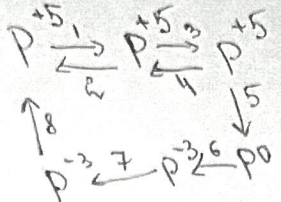 P⁺⁵ 1 P⁺⁵ 3 P⁺⁵
2 4
8 5
P⁻³ 7 P⁻³ 6 P⁰